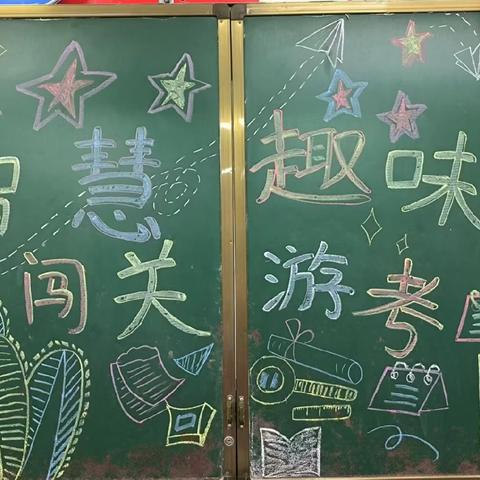 慧 趣味
闯关 游考